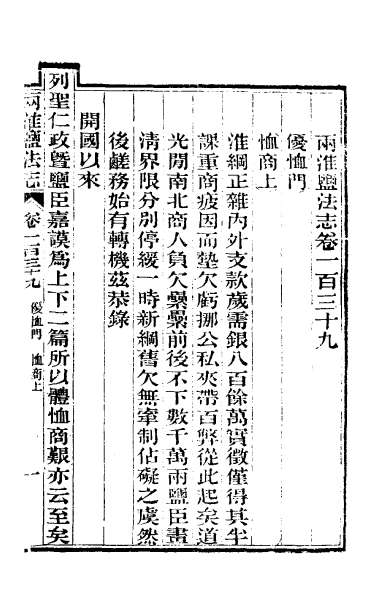 兩淮鹽法志卷一百三十九
優恤門
恤商上
淮綱正雜內外支款歲需銀八百餘萬實徵僅得其半
課重商疲因而墊欠虧挪公私夾帶百弊從此起矣道
光閒南北商人負欠纍纍前後不下數千萬兩鹽臣畫
清界限分別停緩一時新綱舊欠無牽制佔礙之虞然
後鹺務始有轉機茲恭錄
開國以來
列聖仁政曁鹽臣嘉謨爲上下二篇所以體恤商艱亦云至矣
兩淮鹽法志 卷一百三十九 優恤門 恤商上 一